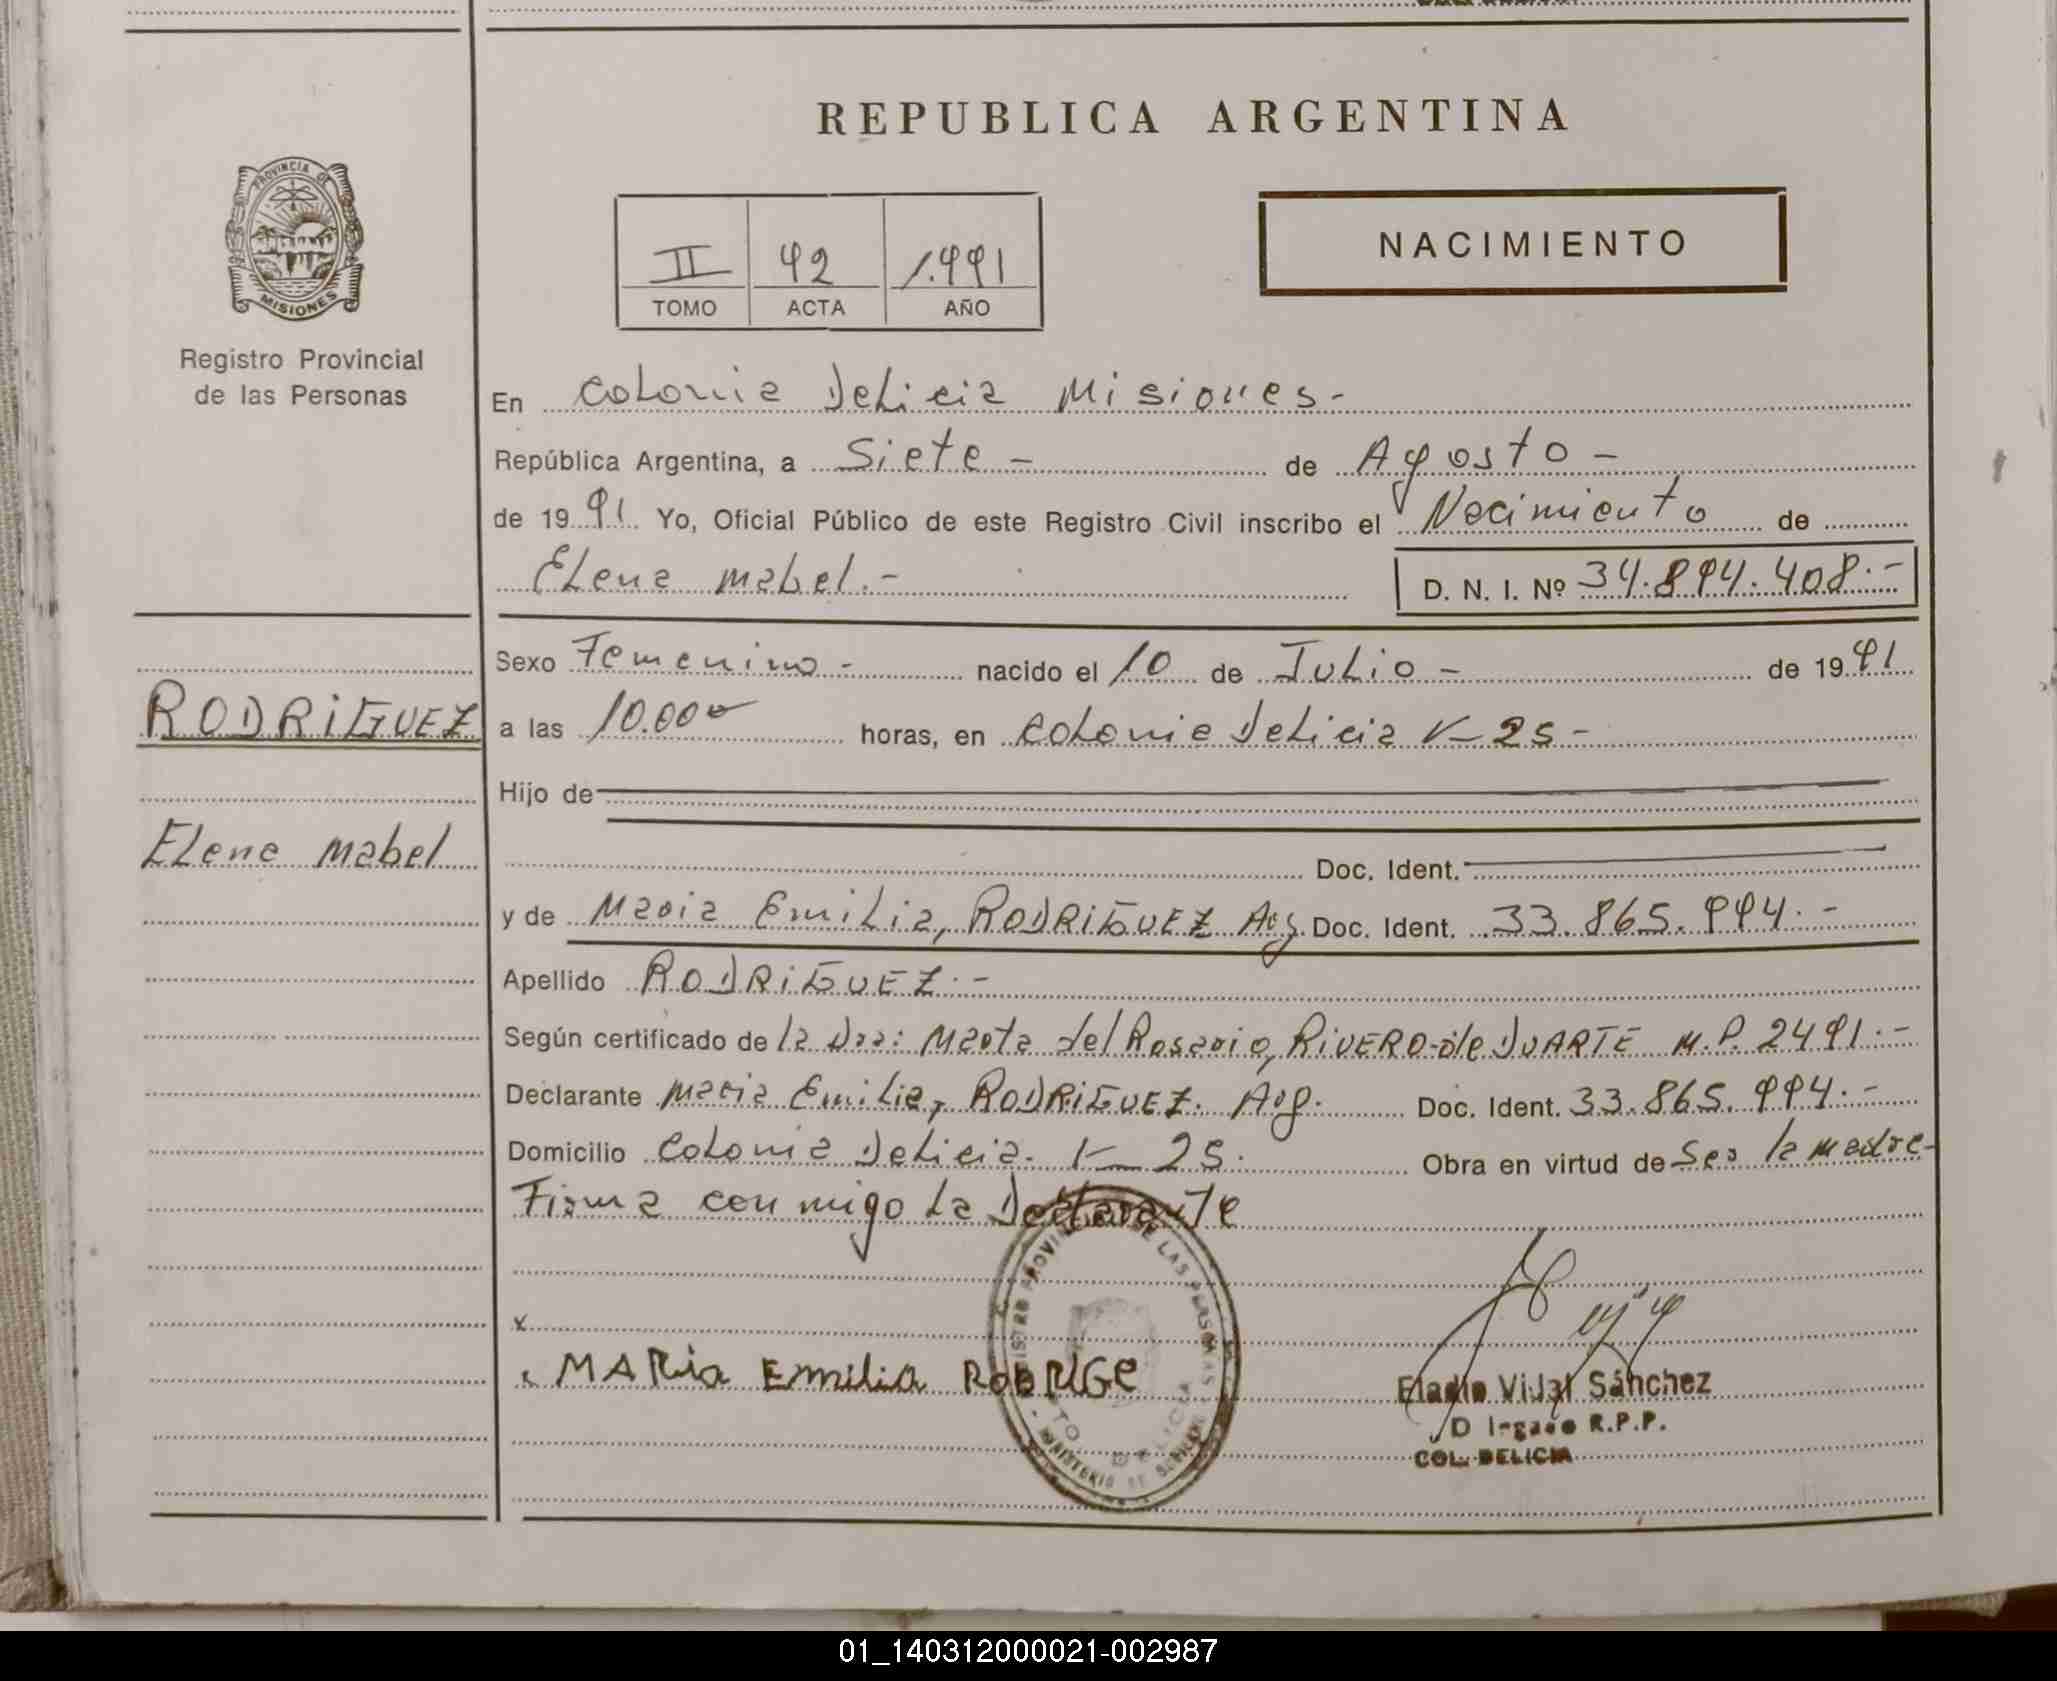 REPUBLICA ARGENTINA
PROVINCIA DE MISIONES
Registro Provincial
de las Personas
II 42 1.991
TOMO ACTA AÑO
NACIMIENTO
En Colonia Delicia Misiones.-
República Argentina, a Siete - de Agosto -
de 1991 Yo, Oficial Público de este Registro Civil inscribo el Nacimiento de
Elena Mabel.- D. N. I. Nº 34.894.408.-
Sexo Femenino - nacido el 10 de Julio - de 1991
RODRIGUEZ
a las 10.00 horas, en Colonia Delicia K-25 -
Hijo de
Elena Mabel
Doc. Ident.
y de Maria Emilia, RODRIGUEZ Arg. Doc. Ident. 33.865.994.-
Apellido RODRIGUEZ.-
Según certificado de la Dra: Marta del Rosario, RIVERO de DUARTE M.P. 2491.-
Declarante Maria Emilia, RODRIGUEZ. Arg. Doc. Ident. 33.865.994.-
Domicilio Colonia Delicia. K-25. Obra en virtud de Ser la madre-
Firma con migo la Declarante
x
MARia Emilia RODRIGE
Eladio Vidal Sánchez
Delegado R.P.P.
COL. DELICIA
01_140312000021-002987